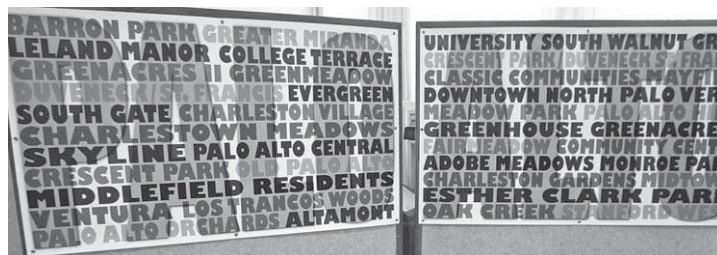 BARRON PARK GREATER MIRANDA
LELAND MANOR COLLEGE TERRACE
GREENACRES II GREENMEADOW
DUVENECK/ST. FRANCIS EVERGREEN
SOUTH GATE CHARLESTON VILLAGE
CHARLESTOWN MEADOWS
SKYLINE PALO ALTO CENTRAL
CRESCENT PARK OLD PALO ALTO
MIDDLEFIELD RESIDENTS
VENTURA LOS TRANCOS WOODS
PALO ALTO ORCHARDS ALTAMONT
UNIVERSITY SOUTH WALNUT GR
CRESCENT PARK/DUVENECK ST. FRAN
CLASSIC COMMUNITIES MAYFI
DOWNTOWN NORTH PALO VER
MEADOW PARK PALO ALTO
GREENHOUSE GREENACRE
FAIRMEADOW COMMUNITY CENT
ADOBE MEADOWS MONROE PA
CHARLESTON GARDENS MIDTO
ESTHER CLARK PARK
OAK CREEK STANFORD WE